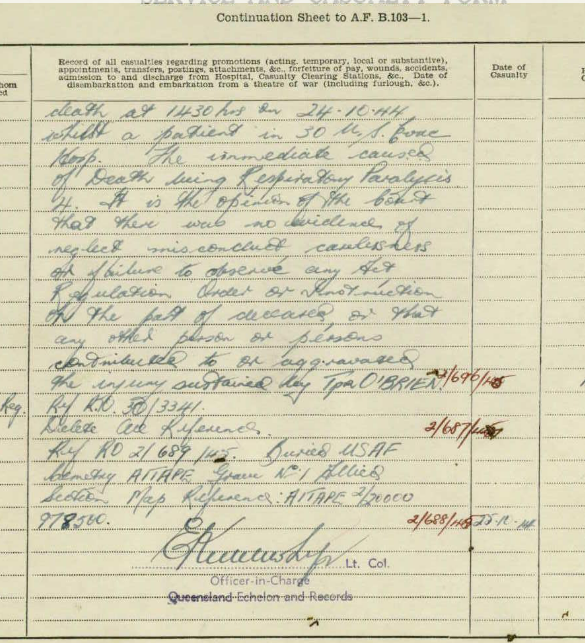 SERVICE AND CASUALTY FORM
Continuation Sheet to A.F. B.103—1.
Record of all casualties regarding promotions (acting, temporary, local or substantive),
appointments, transfers, postings, attachments, &c., forfeiture of pay, wounds, accidents,
admission to and discharge from Hospital, Casualty Clearing Stations, &c., Date of
disembarkation and embarkation from a theatre of war (including furlough, &c.).
Date of
Casualty
death at 1430 hrs on 24-10-44
whilst a patient in 30 U.S. Evac
Hosp. The immediate caused
of Death being Respiratory Paralysis.
4. It is the opinion of the Court
that there was no evidence of
neglect misconduct carelessness
or failure to observe any Act
Regulation Order or Instruction
on the part of deceased or that
any other person or persons
contributed to or aggravated
the injury sustained by Tpr O'BRIEN 2/696/45
Reg. Ref R.O. 30/3341.
Delete All Reference. 2/687/45
Ref RO 2/689/45. Buried USAF
Cemetery AITAPE Grave No 1 Allied
Section Map Reference: AITAPE 2/20000
978500. 2/688/45 25-10-44
Lt. Col.
Officer-in-Charge
Queensland Echelon and Records